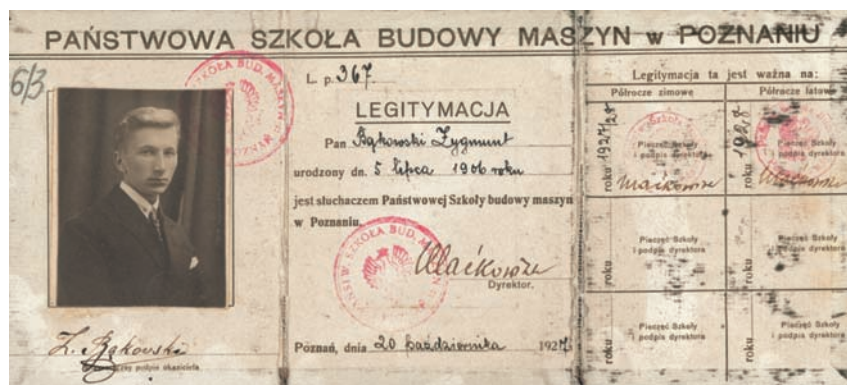 PAŃSTWOWA SZKOŁA BUDOWY MASZYN w POZNANIU
6/3
L. p. 367.
LEGITYMACJA
Pan Bąkowski Zygmunt
urodzony dn. 5 lipca 1906 roku
jest słuchaczem Państwowej Szkoły budowy maszyn
w Poznaniu.
Dyrektor.
Poznań, dnia 20 października 1927
Z. Bąkowski
podpis okaziciela
Legitymacja ta jest ważna na:
Półrocze zimowe
Półrocze latowe
roku 1927/28
Pieczęć Szkoły
i podpis dyrektora
roku 1928
Pieczęć Szkoły
i podpis dyrektora
roku
Pieczęć Szkoły
i podpis dyrektora
roku
Pieczęć Szkoły
i podpis dyrektora
roku
Pieczęć Szkoły
i podpis dyrektora
roku
Pieczęć Szkoły
i podpis dyrektora